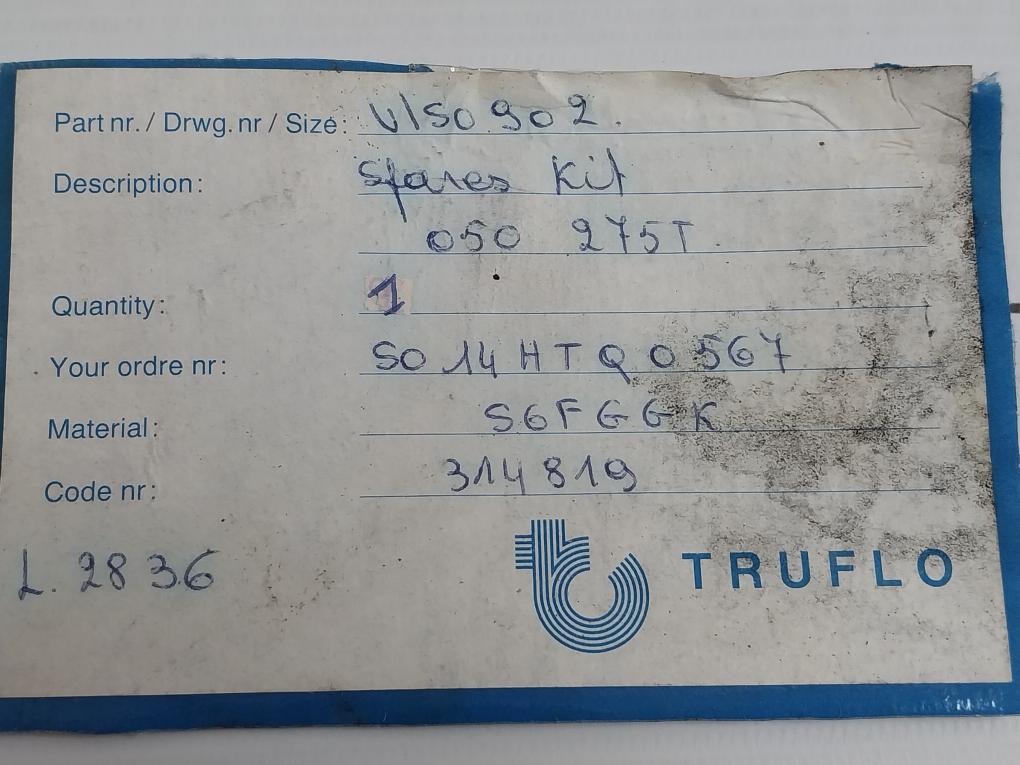 Part nr. / Drwg. nr / Size: V/SO 902.
Description: Spares Kit
050 275T
Quantity: 1
Your ordre nr: SO 14 HTQ 0567
Material: S6FGGK
Code nr: 314819
L. 2836
TRUFLO